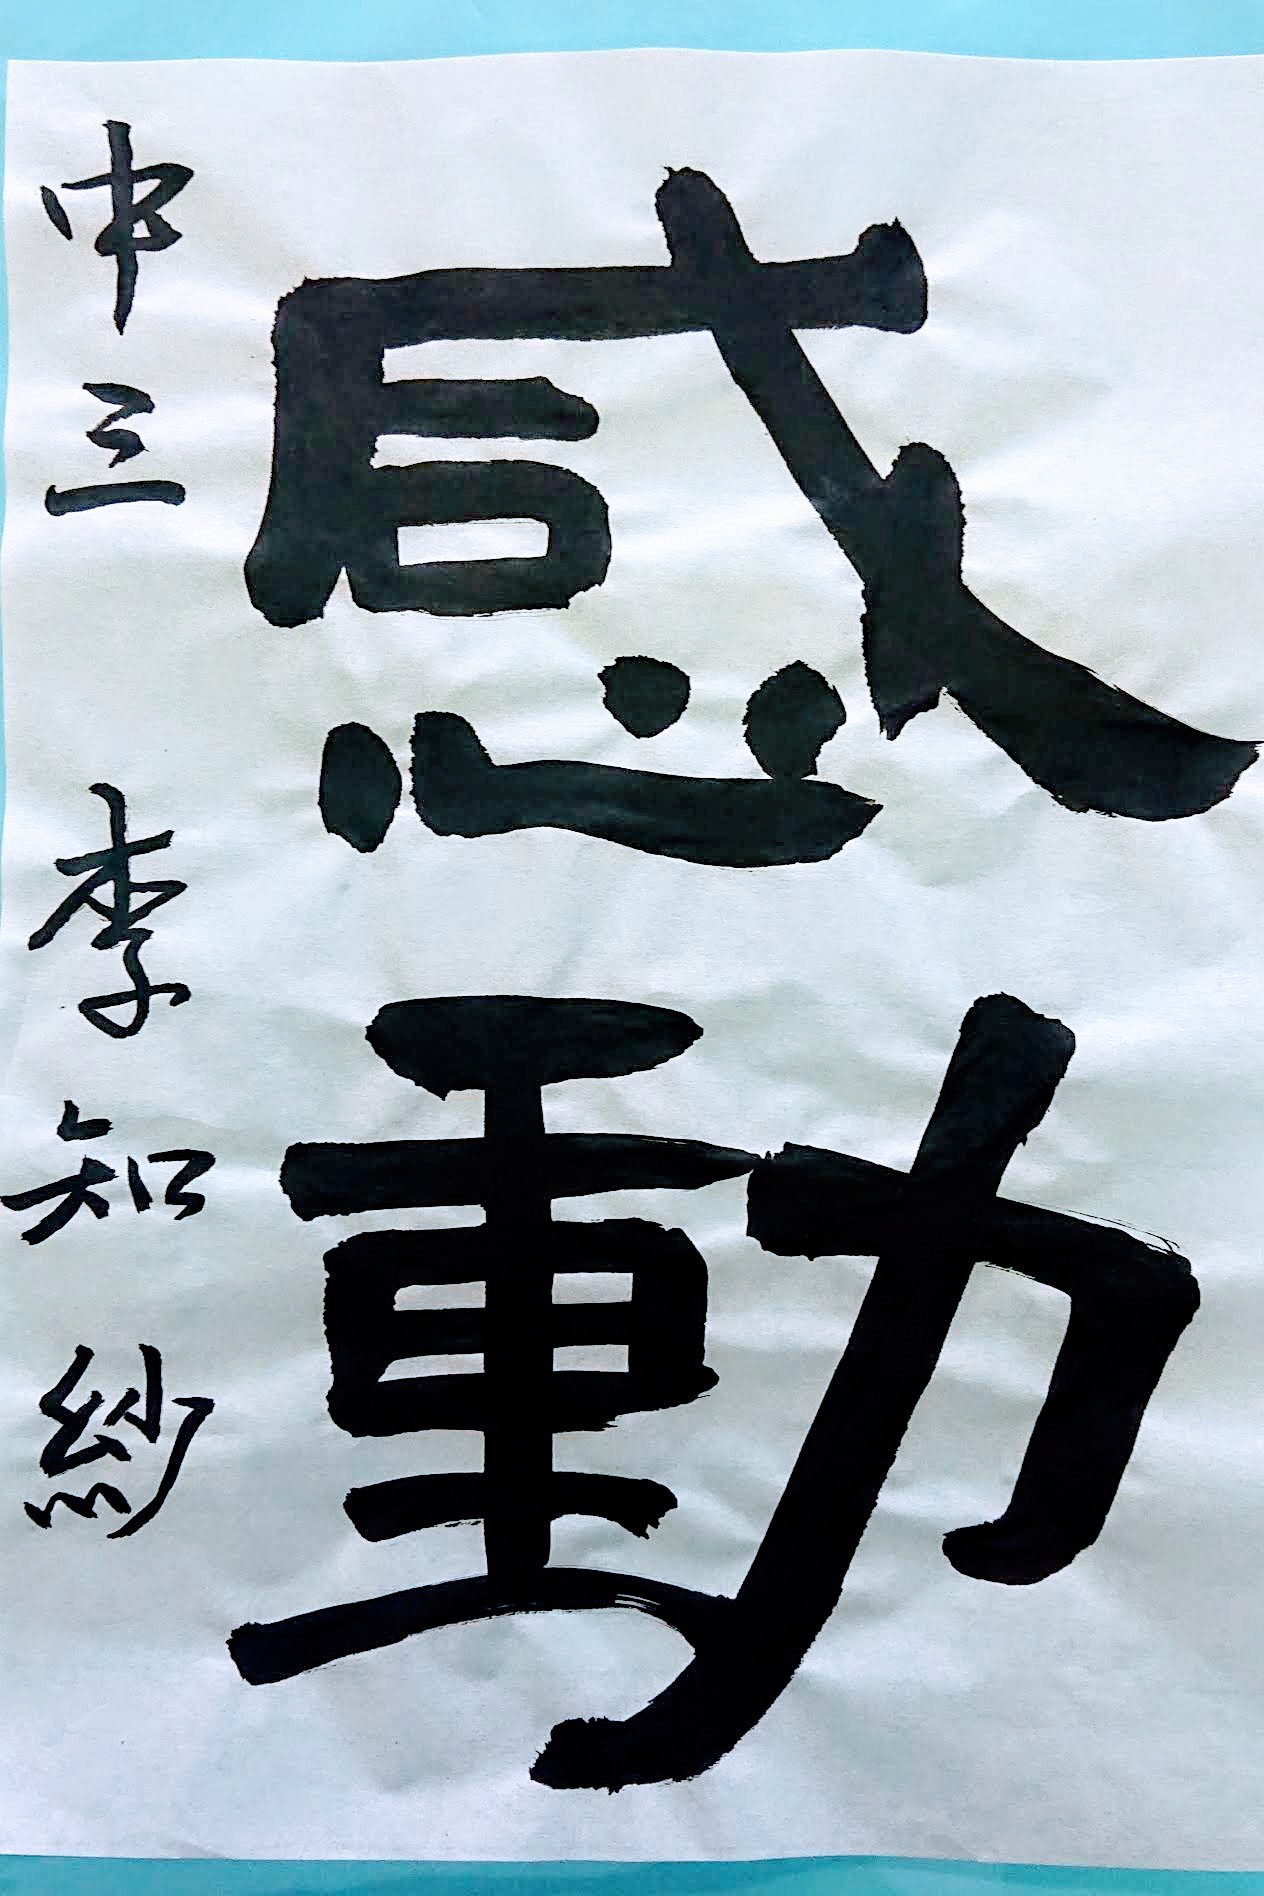 感動
中三 李知紗